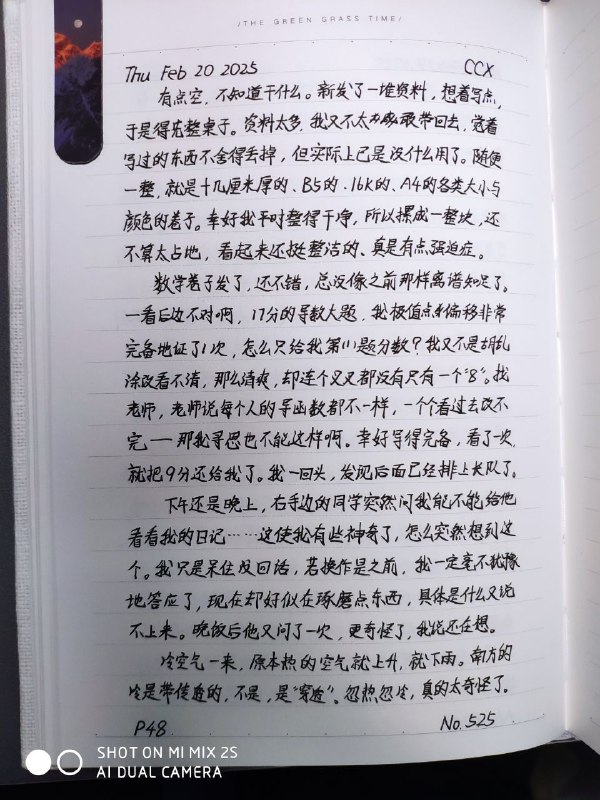 /THE GREEN GRASS TIME/
Thu Feb 20 2025 CCX
有点空，不知道干什么。新发了一堆资料，想着写点，
于是得先整桌子。资料太多，我又不太敢带回去，觉着
写过的东西不舍得丢掉，但实际上已是没什么用了。随便
一整，就是十几厘米厚的、B5的、16k的、A4的各类大小与
颜色的卷子。幸好我平时整得干净，所以摞成一整块，还
不算太占地，看起来还挺整洁的、真是有点强迫症。
数学卷子发了，还不错，总没像之前那样离谱知足了。
一看后边不对啊，17分的导数大题，我极值点偏移非常
完备地证了1次，怎么只给我第(1)题分数？我又不是胡乱
涂改看不清，那么清爽，却连个叉叉都没有只有一个“8”。找
老师，老师说每个人的导函数都不一样，一个个看过去改不
完——那我寻思也不能这样啊。幸好写得完备，看了一次，
就把9分还给我了。我一回头，发现后面已经排上长队了。
下午还是晚上，右手边的同学突然问我能不能给他
看看我的日记……这使我有些神奇了，怎么突然想到这
个。我只是呆住没回话，若换作是之前，我一定毫不犹豫
地答应了，现在却好似在琢磨点东西，具体是什么又说
不上来。晚饭后他又问了一次，更奇怪了，我说还在想。
冷空气一来，原本热的空气就上升，就下雨。南方的
冷是带传透的，不是，是“穿透”。忽热忽冷，真的太奇怪了。
P48 No.525
SHOT ON MI MIX 2S
AI DUAL CAMERA